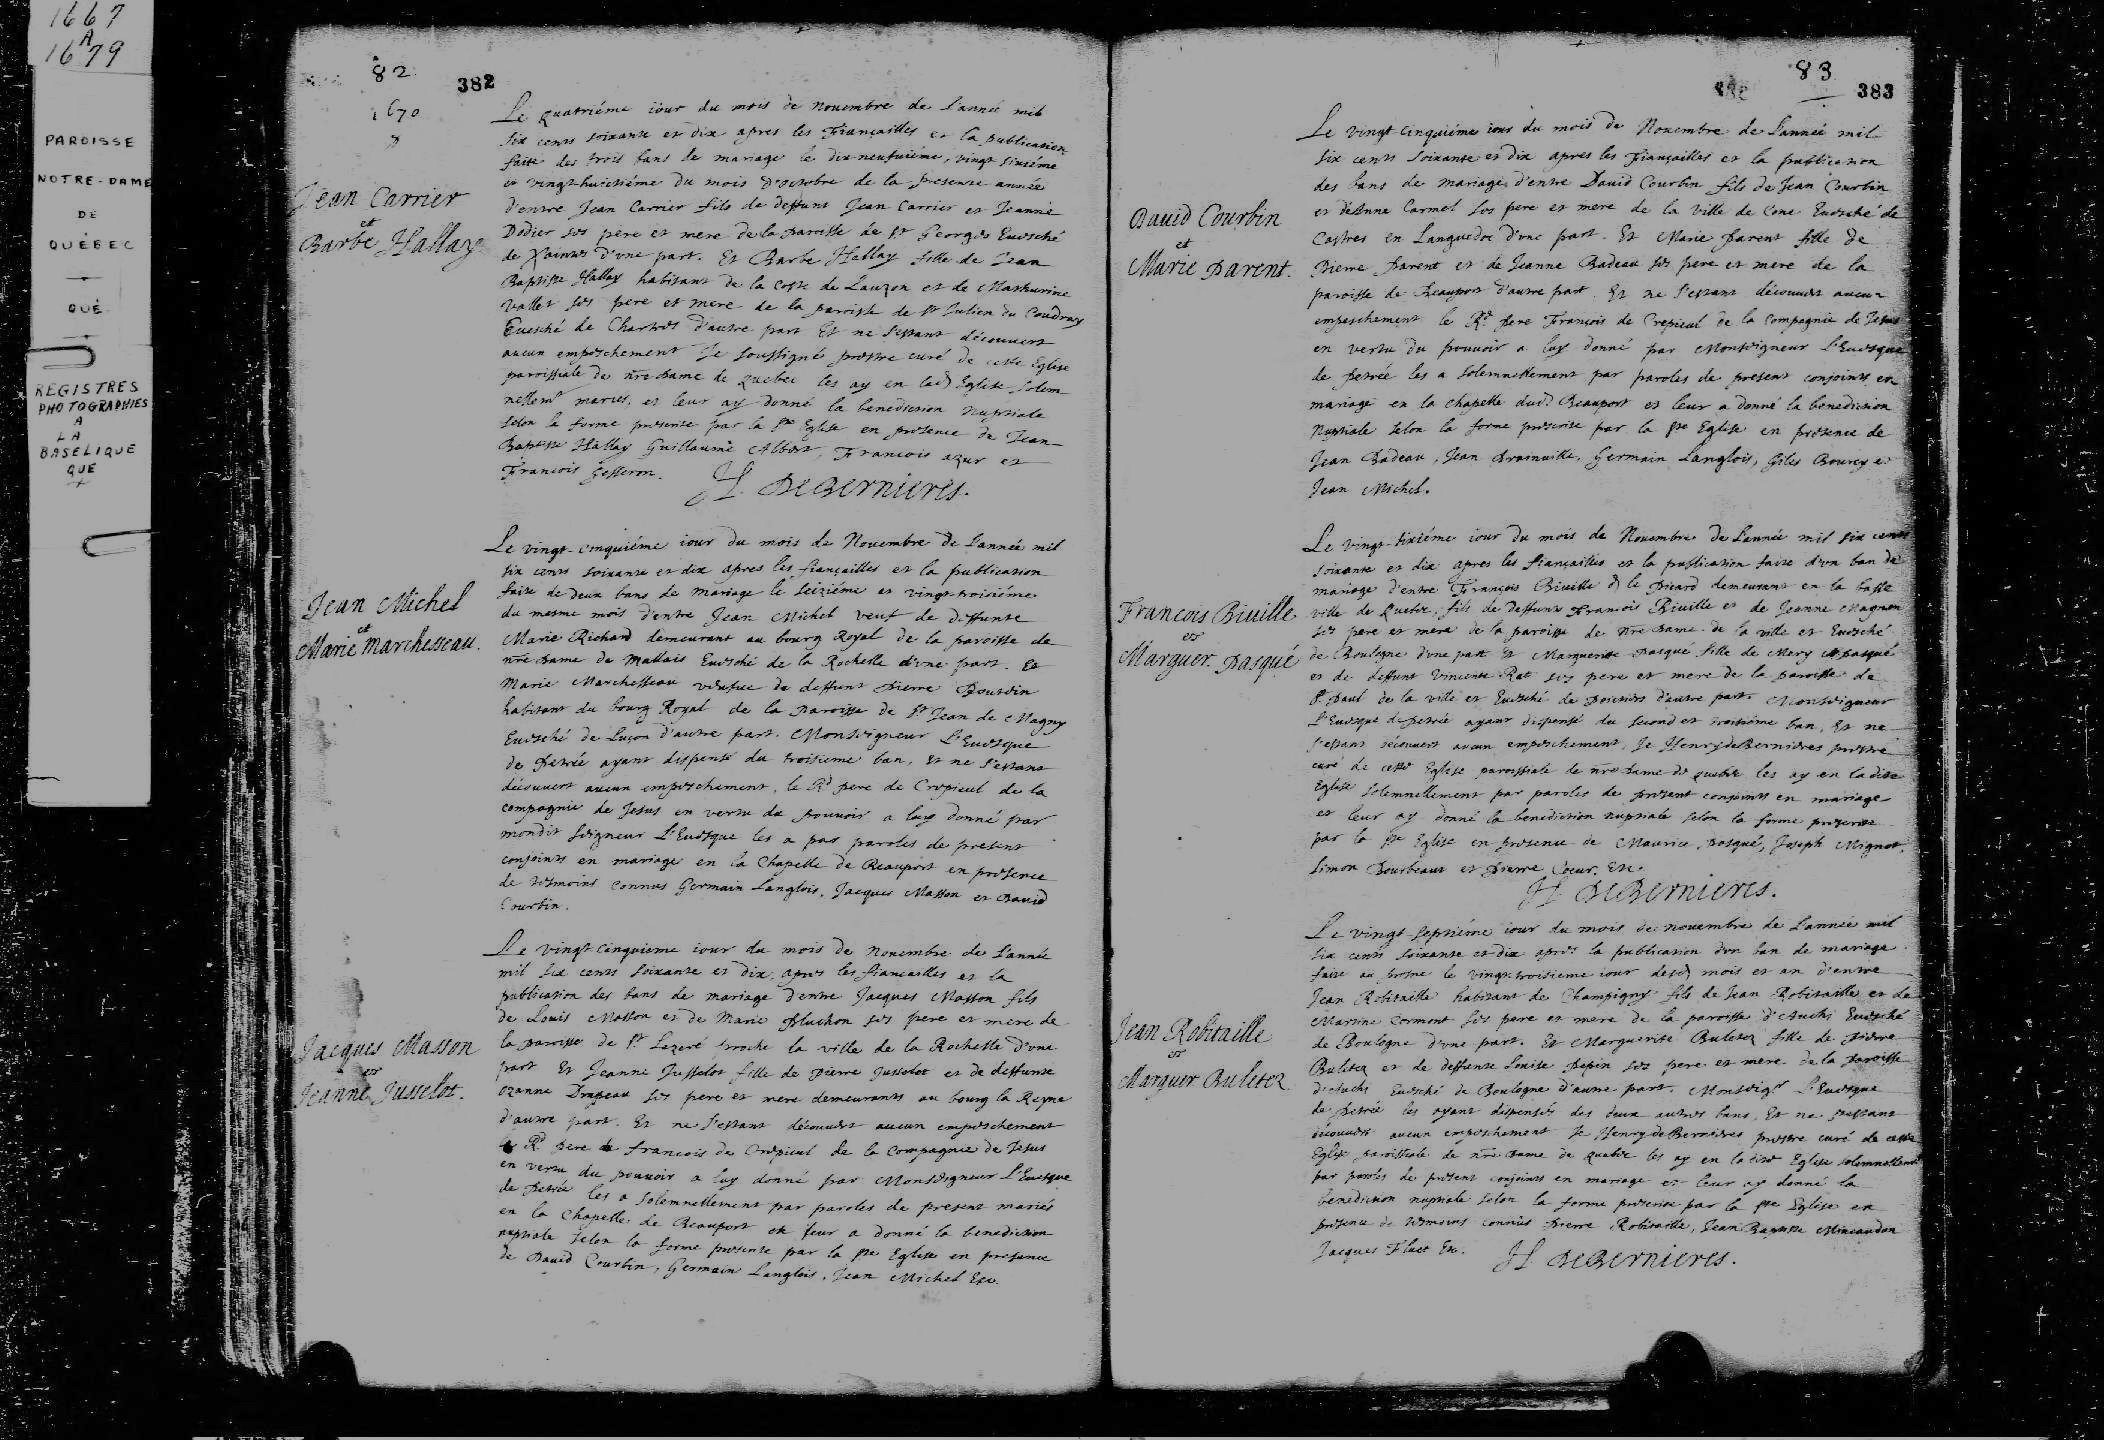 1667
A
1679
PAROISSE
NOTRE-DAME
DE
QUÉBEC
QUÉ
REGISTRES
PHOTOGRAPHIÉS
A
LA
BASELIQUE
QUE
82
382
1670
Jean Carrier
et
Barbe Hallay
Le quatriéme iour du mois de Nouembre de l'année mil
six cents soixante et dix apres les fiançailles et la publication
faite des trois bans de mariage le dix neufuiéme, vingt sixiéme
et vingt-huictiéme du mois d'octobre de la presente année
d'entre Jean Carrier fils de deffunt Jean Carrier et Jeanne
Dodier ses pere et mere de la Paroisse de St Georges Euesché
de Xaintes d'une part. Et Barbe Hallay fille de Jean
Baptiste Hallay habitant de la coste de Lauzon et de Mathurine
Vallet ses pere et mere de la paroisse de St Julien du Coudray
Euesché de Chartres d'autre part Et ne s'estant découuert
aucun empeschement Je soussigné prestre curé de cette Eglise
paroissiale de nre Dame de Quebec les ay en lad Eglise solem
nellemt mariés, et leur ay donné la benediction nuptiale
selon la forme prescrite par la Ste Eglise en presence de Jean
Baptiste Hallay Guillaume Albert, Francois azur et
Francois Gesseron.
H. DeBernieres.
Jean Michel
et
Marie Marchesseau.
Le vingt-cinquiéme iour du mois de Nouembre de l'année mil
six cents soixante et dix apres les fiançailles et la publication
faite de deux bans de mariage le seiziéme et vingt-troisiéme
du mesme mois d'entre Jean Michel veuf de deffunte
Marie Richard demeurant au bourg Royal de la paroisse de
nre Dame de Mallais Euesché de la Rochelle d'vne part. Et
Marie Marchesseau veufue de deffunt Pierre Bourbin
habitant du bourg Royal de la Paroisse de St Jean de Magny
Euesché de Luçon d'autre part. Monseigneur L'Euesque
de Petrée ayant dispensé du troisieme ban, et ne s'estant
découuert aucun empeschement, le Rd pere de Crepieul de la
compagnie de Jesus en vertu du pouuoir a luy donné par
mondit seigneur L'Euesque les a par paroles de present
conjoints en mariage en la Chapelle de Beauport en presence
de tesmoins connus Germain Langlois, Jacques Masson et Dauid
Courbin.
Jacques Masson
et
Jeanne Jusselot.
Le vingt cinquieme iour du mois de nouembre de l'année
mil six cents soixante et dix, apres les fiancailles et la
publication des bans de mariage d'entre Jacques Masson fils
de Louis Masson et de Marie Pluchon ses pere et mere de
la paroisse de St Lazeré proche la ville de la Rochelle d'une
part Et Jeanne Jusselot fille de Pierre Jusselot et de deffunte
Ozanne Drapeau ses pere et mere demeurants au bourg la Reyne
d'autre part. Et ne s'estant découuert aucun empeschement
le Rd Pere de francois de Crepieul de la Compagnie de Jesus
en vertu du pouuoir a luy donné par Monseigneur L'Euesque
de Petrée les a solemnellement par paroles de present mariés
en la Chapelle de Beauport et leur a donné la benediction
nuptiale selon la forme prescrite par la Ste Eglise en presence
de Dauid Courbin, Germain Langlois, Jean Michel Etc.
83
383
Dauid Courbin
et
Marie Parent.
Le vingt cinquiéme iour du mois de Nouembre de L'année mil
six cents soixante et dix apres les fiançailles et la publication
des bans de mariage d'entre Dauid Courbin fils de Jean Courbin
et d'Anne Carmel ses pere et mere de la ville de Cone Euesché de
Castres en Languedoc d'une part. Et Marie Parent fille de
Pierre Parent et de Jeanne Badeau ses pere et mere de la
paroisse de Beauport d'autre part. Et ne s'estant découuert aucun
empeschement le Rd Pere François de Crepieul de la Compagnie de Jesus
en vertu du pouuoir a luy donné par Monseigneur L'Euesque
de Petrée les a solemnellement par paroles de present conjoints en
mariage en la Chapelle dud Beauport et leur a donné la benediction
Nuptiale selon la forme prescrite par la Ste Eglise en presence de
Jean Badeau, Jean Drainuille, Germain Langlois, Giles Bourcy et
Jean Michel.
Francois Biuille
et
Marguer. Pasqué
Le vingt-sixiéme iour du mois de Nouembre de L'année mil six cents
soixante et dix apres les fiançailles et la publication faite d'un ban de
mariage d'entre François Biuille d le Picard demeurant en la basse
ville de Quebec, fils de deffunts Francois Biuille et de Jeanne Magnon
ses pere et mere de la paroisse de nre Dame de la ville et Euesché
de Boulogne d'une part Et Marguerite Pasqué fille de Mery Pasqué
et de deffunt Vincente Rat ses pere et mere de la paroisse de
St Paul de la ville et Euesché de Poictiers d'autre part. Monseigneur
L'Euesque de Petrée ayant dispensé du second et troisiéme ban, Et ne
s'estant découuert aucun empeschement, Je Henry de Bernieres prestre
curé de cette Eglise paroissiale de nre Dame de quebec les ay en ladite
Eglise solemnellement par paroles de present conjoints en mariage
et leur ay donné la benediction nuptiale selon la forme prescrite
par la Ste Eglise en presence de Maurice Pasqué, Joseph Mignot,
Simon Bourbeaux et Pierre Coeur, Etc.
H DeBernieres.
Jean Robitaille
et
Marguer Buletez
Le vingt-septiéme iour du mois de nouembre de L'année mil
six cents soixante et dix apres la publication d'un ban de mariage
faite au prosne le vingt-troisieme iour desd mois et an d'entre
Jean Robitaille habitant de Champigny fils de Jean Robitaille et de
Martine Cormont ses pere et mere de la paroisse d'Auchi Euesché
de Boulogne d'une part. Et Marguerite Buletez fille de Pierre
Buletez et de deffunte Louise Pepin ses pere et mere de la paroisse
d'Auchi Euesché de Boulogne d'autre part. Monseigr L'Euesque
de Petrée les ayant dispensés des deux autres bans, Et ne s'estant
découuert aucun empeschement Je Henry de Bernieres prestre curé de cette
Eglise paroissiale de nre Dame de quebec les ay en ladite Eglise solemnellement
par paroles de present conjoints en mariage et leur ay donné la
benediction nuptiale selon la forme prescrite par la Ste Eglise en
presence de tesmoins connus Pierre Robitaille, Jean Baptiste Mincaudon
Jacques Fluet Etc.
H DeBernieres.